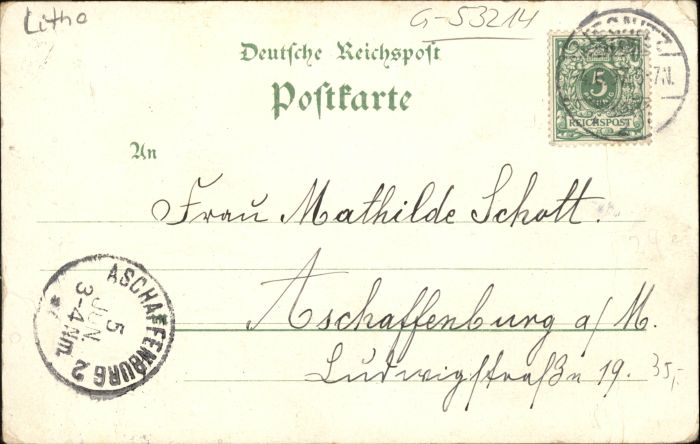 Litho
G-53214
Deutsche Reichspost
Postkarte
5
REICHSPOST
7N.
An
Frau Mathilde Schott.
Aschaffenburg a/M.
Ludwigstraße 19.
35,-
ASCHAFFENBURG 2
5
JUN
3-4Nm.